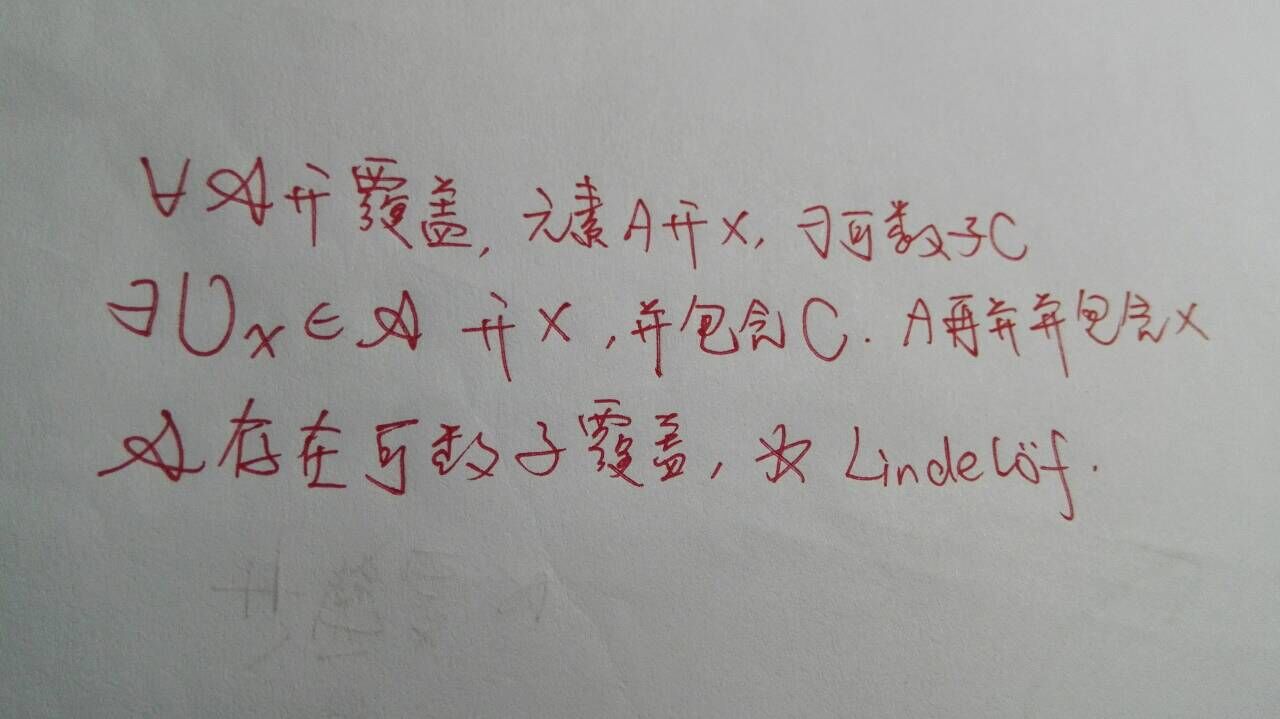 ∀𝒜开覆盖, 元素A开X, ∃可数子C
∃Uₓ∈𝒜 开X, 并包含C. A再并并包含X
𝒜存在可数子覆盖, 为Lindelöf.